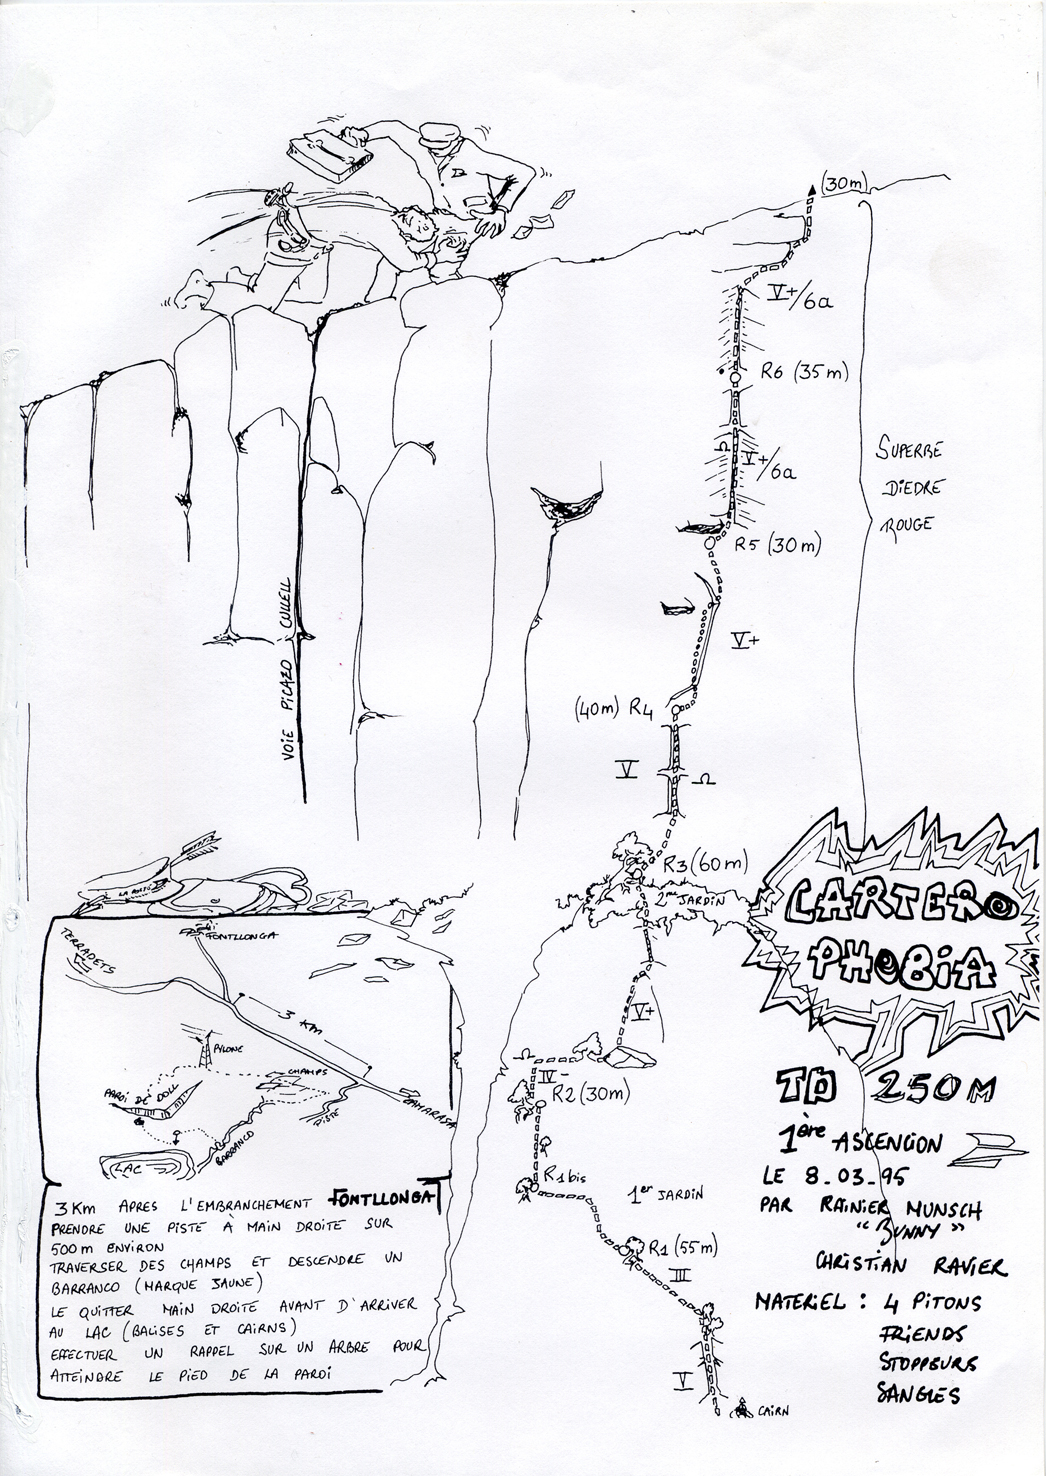 (30m)
V+/6a
R6 (35m)
V+/6a
SUPERBE
DIEDRE
ROUGE
R5 (30m)
V+
(40m) R4
V
VOIE PICAZO CULLELL
R3 (60m)
2me JARDIN
CARTERO
PHOBIA
V+
IV-
R2 (30m)
R1bis
1er JARDIN
R1 (55m)
III
V
CAIRN
TD 250M
1ère ASCENCION
LE 8.03.95
PAR RAINIER MUNSCH
"BUNNY"
CHRISTIAN RAVIER
MATERIEL : 4 PITONS
FRIENDS
STOPPEURS
SANGLES
FONTLLONGA
TERRADETS
3 KM
PYLONE
CHAMPS
PAROI DE DOLL
PISTE
CAMARASA
BARRANCO
LAC
3 KM APRES L'EMBRANCHEMENT FONTLLONGA
PRENDRE UNE PISTE À MAIN DROITE SUR
500m ENVIRON
TRAVERSER DES CHAMPS ET DESCENDRE UN
BARRANCO (MARQUE JAUNE)
LE QUITTER MAIN DROITE AVANT D'ARRIVER
AU LAC (BALISES ET CAIRNS)
EFFECTUER UN RAPPEL SUR UN ARBRE POUR
ATTEINDRE LE PIED DE LA PAROI